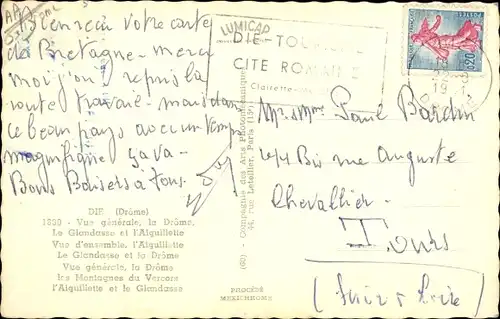 Bien reçu votre carte
de Bretagne - merci
moi j'ai repris la
route travail - mais dans
ce beau pays avec un temps
magnifique ça va -
Bons Baisers a tous.
DIE (Drôme)
1850 - Vue générale, la Drôme,
Le Glandasse et l'Aiguillette
Vue d'ensemble, l'Aiguillette
Le Glandasse et la Drôme
Vue générale, la Drôme
les Montagnes du Vercors
l'Aiguillette et le Glandasse
LUMICAP
(60) - Compagnie des Arts Photomécaniques
44, rue Letellier, Paris (15e)
PROCÉDÉ
MEXICHROME
DIE-TOU
CITE ROMAINE
Clairette
0,20
19
Mr & Mme Paul Bardin
44 Bis rue Auguste
Chevallier.
Tours
(Indre & Loire)